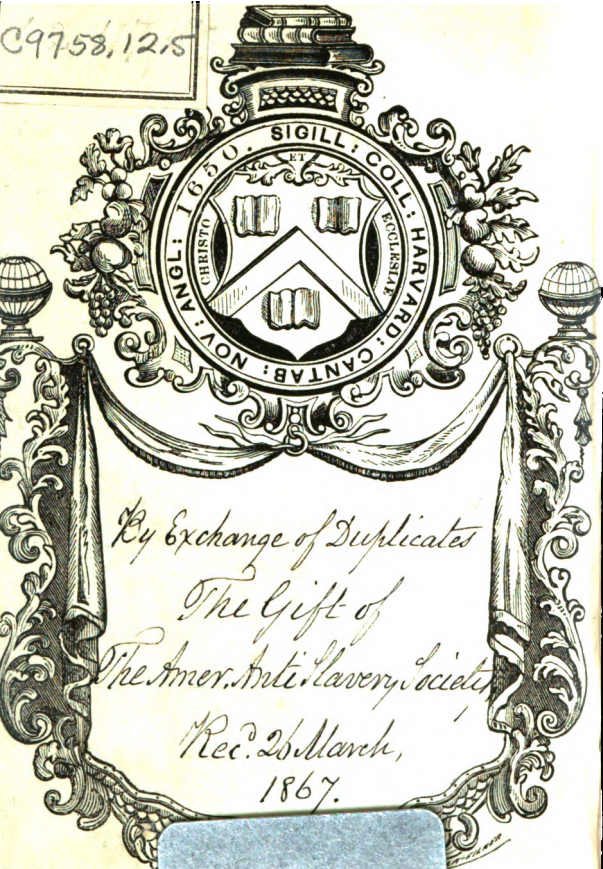 C9758.12.5
SIGILL: COLL: HARVARD: CANTAB: NOV: ANGL: 1650.
ET
CHRISTO
ECCLESIAE
By Exchange of Duplicates
The Gift of
The Amer. Anti Slavery Society,
Rec'd. 26 March,
1867.